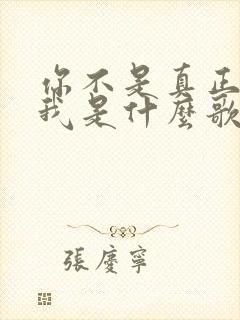 你不是真正
我是什麼歌
張慶寧